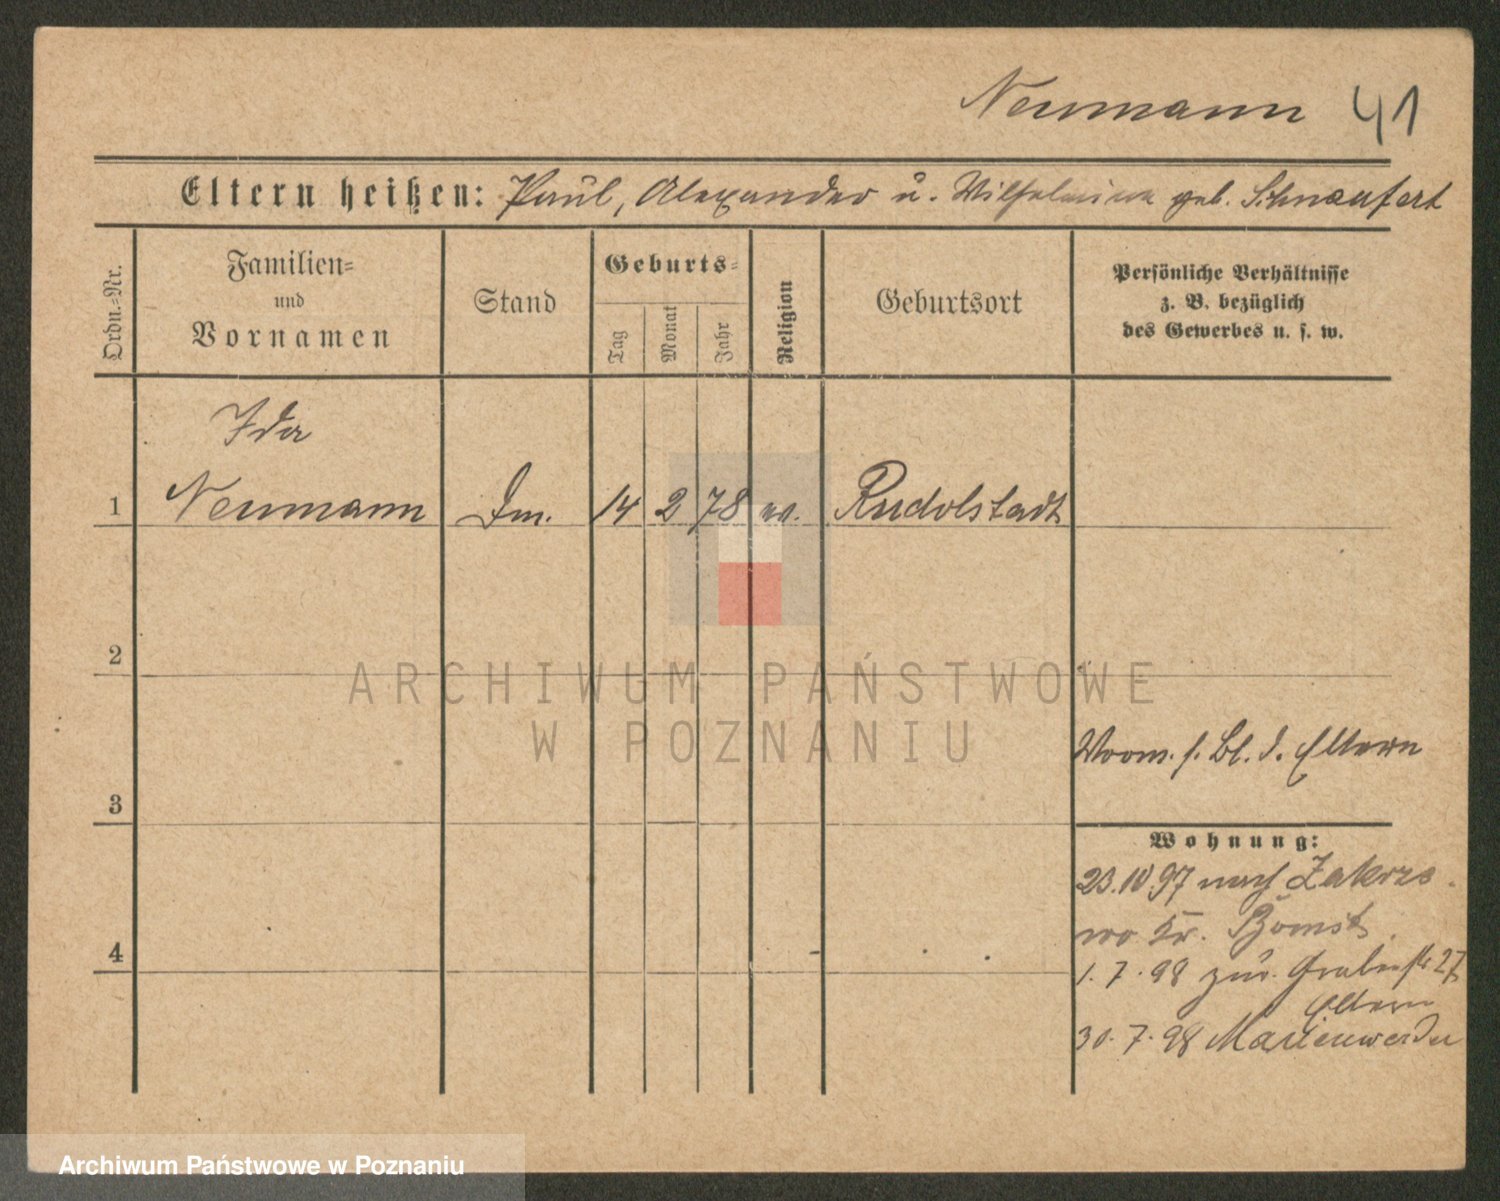 Neumann 41
Eltern heißen: Paul, Alexander u. Wilhelmine geb. Schnaufert
Ordn.=Nr.
Familien=
und
Vornamen
Stand
Geburts=
Tag
Monat
Jahr
Religion
Geburtsort
Persönliche Verhältnisse
z. B. bezüglich
des Gewerbes u. s. w.
Ida
1 Neumann 14 2 78 Rudolstadt
2
ARCHIWUM PAŃSTWOWE
W POZNANIU
s. Bl. d. Eltern
3
Wohnung:
23.10 97 nach Zakrze
wo Kr. Bomst
4
1. 7. 98 zur. Grabenstr 27
Eltern
30. 7. 98 Marienwerder
Archiwum Państwowe w Poznaniu